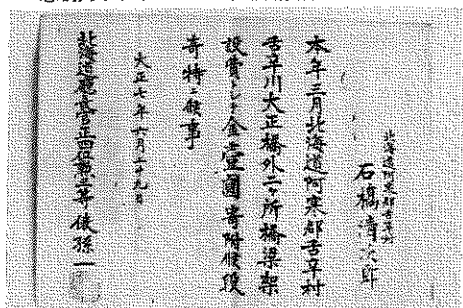 北海道阿寒郡舌辛村
石橋濟次郎
本年三月北海道阿寒郡舌辛村
舌辛川大正橋外二ヶ所橋梁架
設費トシテ金壹圓寄附候段
奇特ニ候事
大正七年六月二十九日
北海道廳長官正四位勲三等俵孫一